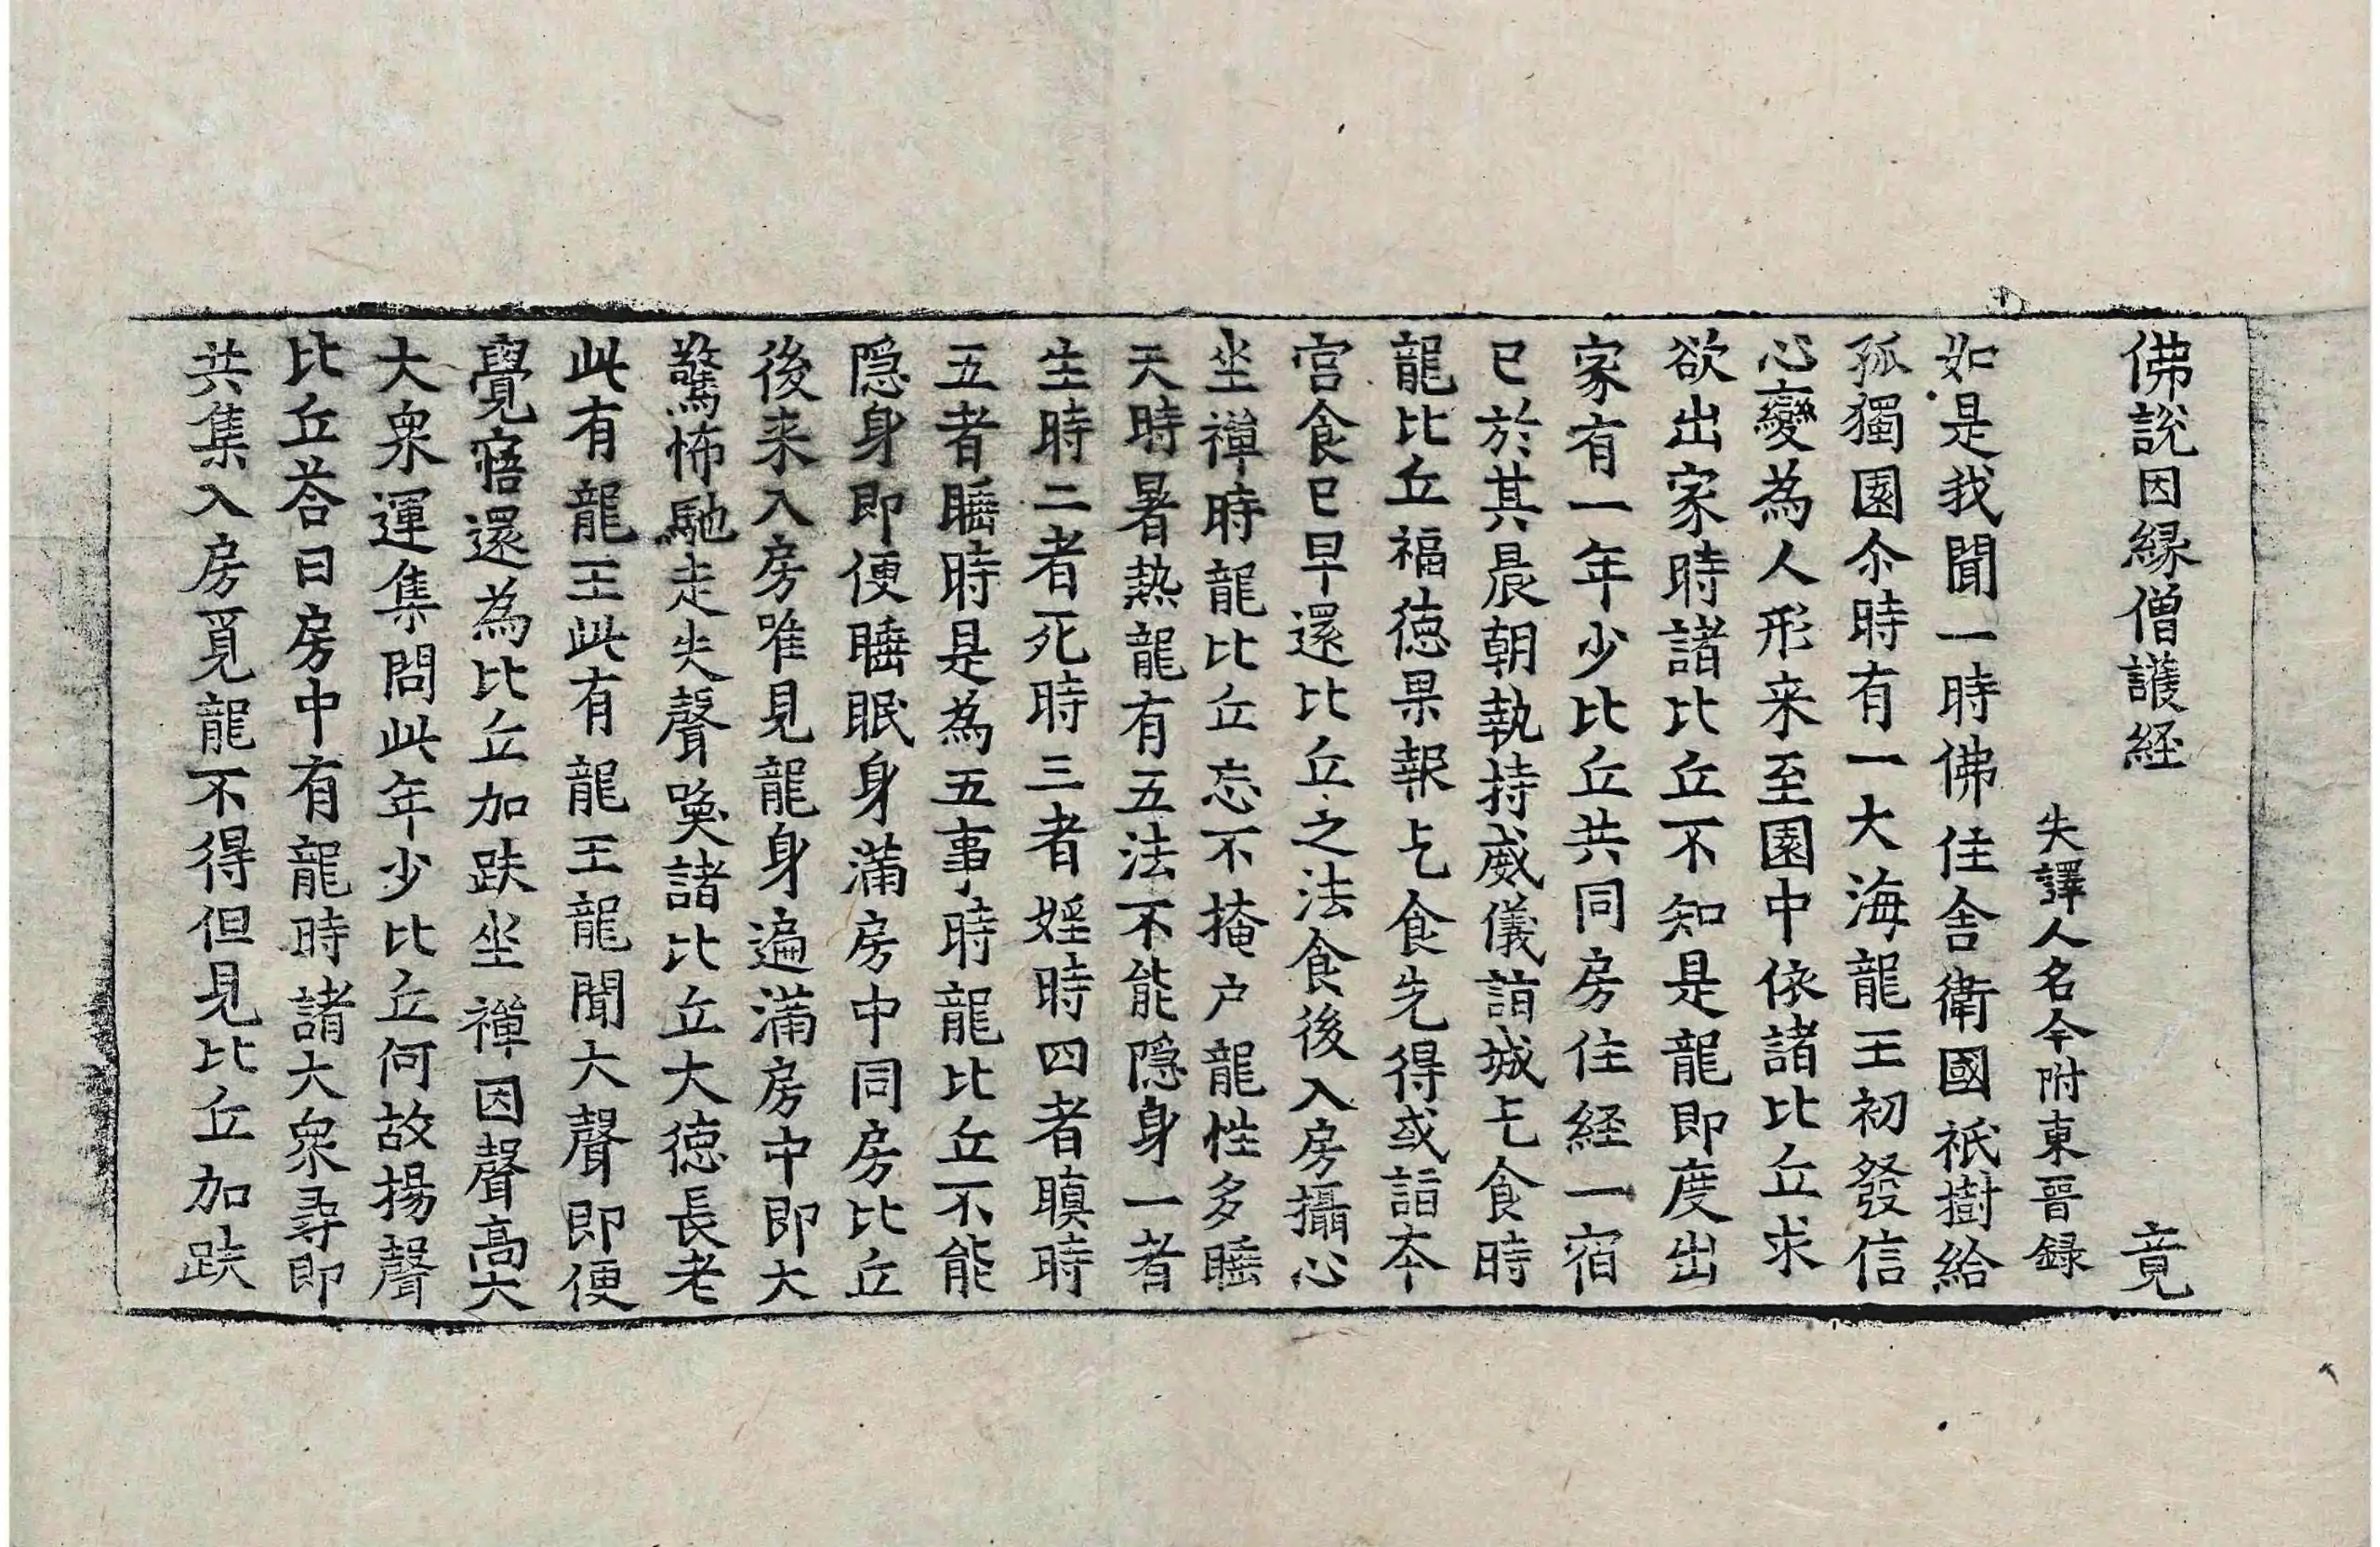 佛說因緣僧護経 竟
失譯人名今附東晉録
如是我聞一時佛住舎衛國祇樹給
孤獨園尒時有一大海龍王初發信
心變為人形来至園中依諸比丘求
欲出家時諸比丘不知是龍即度出
家有一年少比丘共同房住経一宿
已於其晨朝執持威儀詣城乞食時
龍比丘福徳果報乞食先得或詣本
宮食已早還比丘之法食後入房攝心
坐禪時龍比丘忘不掩户龍性多睡
天時暑熱龍有五法不能隠身一者
生時二者死時三者婬時四者瞋時
五者睡時是為五事時龍比丘不能
隠身即便睡眠身滿房中同房比丘
後来入房唯見龍身遍滿房中即大
驚怖馳走失聲喚諸比丘大徳長老
此有龍王此有龍王龍聞大聲即便
覺寤還為比丘加趺坐禪因聲高大
大衆運集問此年少比丘何故揚聲
比丘荅曰房中有龍時諸大衆尋即
共集入房覓龍不得但見比丘加趺